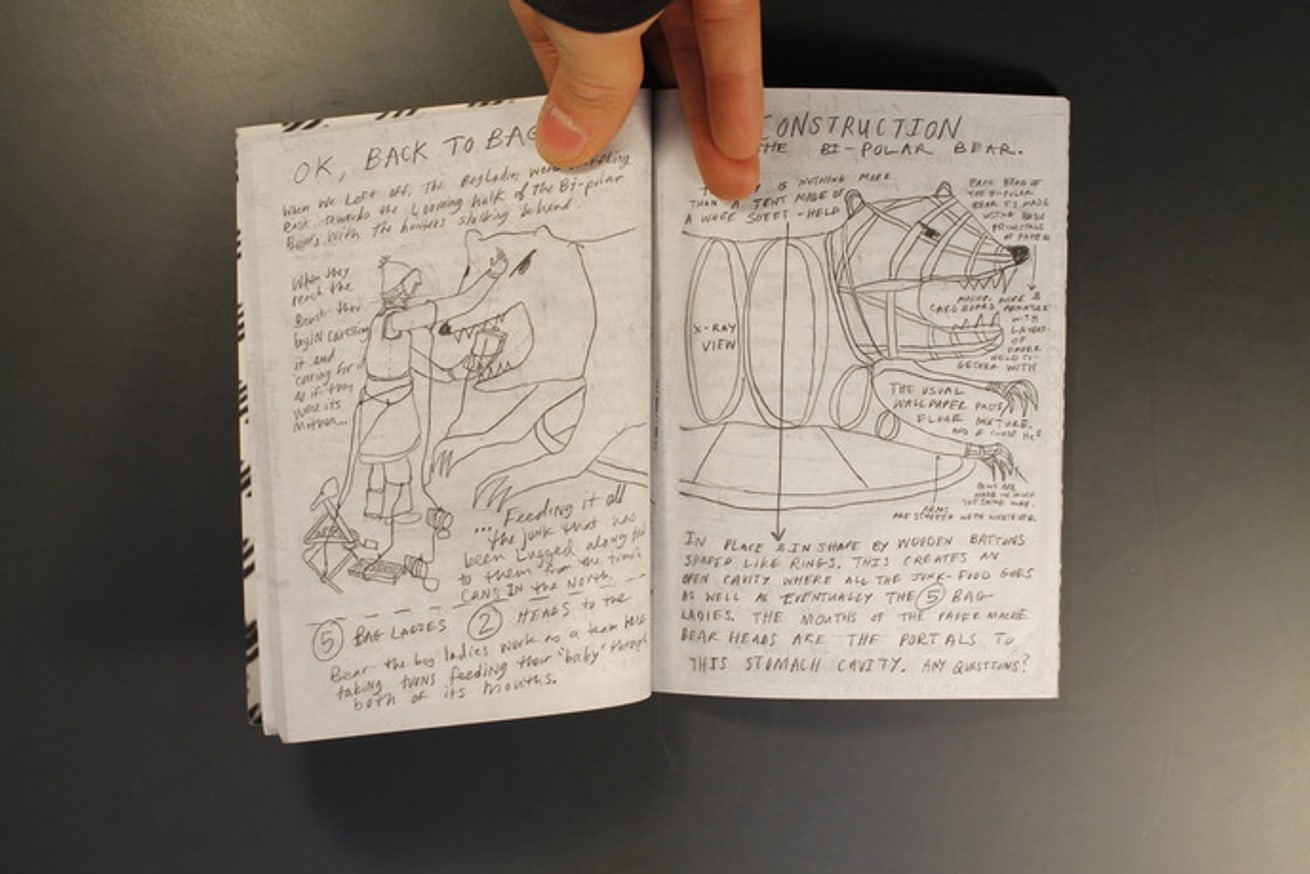 OK, BACK TO BAG
When we Left off, The Bagladies were
east towards the Looming hulk of the Bi-polar
Bears with the hunters stalking behind.
When they
reach the
Beast they
begIN caressing
it and
caring for it
as if they
were its
Mother...
... Feeding it all
the junk that has
been Lugged along
to them from the trash
CANS IN the North.
5 BAG LADIES 2 HEADS to the
Bear - the bag ladies work as a team here
taking turns feeding their "baby" through
both of its mouths.
CONSTRUCTION
THE BI-POLAR BEAR.
IS NOTHING MORE
THAN A TENT MADE OF
A WHITE SHEET - HELD
EACH HEAD OF
THE BI-POLAR
BEAR IS MADE
USING BASIC
PRINCIPALS
OF PAPER
MACHE. WIRE &
CARDBOARD ARMATURE
WITH
LAYERS
OF
PAPER
HELD TO-
GETHER WITH
X-RAY
VIEW
THE USUAL
WALLPAPER PASTE/
FLOUR MIXTURE.
PAWS ARE
MADE IN MUCH
THE SAME WAY.
ARMS
ARE STUFFED WITH WHATEVER.
IN PLACE & IN SHAPE BY WOODEN BATTONS
SHAPED LIKE RINGS. THIS CREATES AN
OPEN CAVITY WHERE ALL THE JUNK-FOOD GOES
AS WELL AS EVENTUALLY THE 5 BAG
LADIES. THE MOUTHS OF THE PAPER MACHE
BEAR HEADS ARE THE PORTALS TO
THIS STOMACH CAVITY. ANY QUESTIONS?